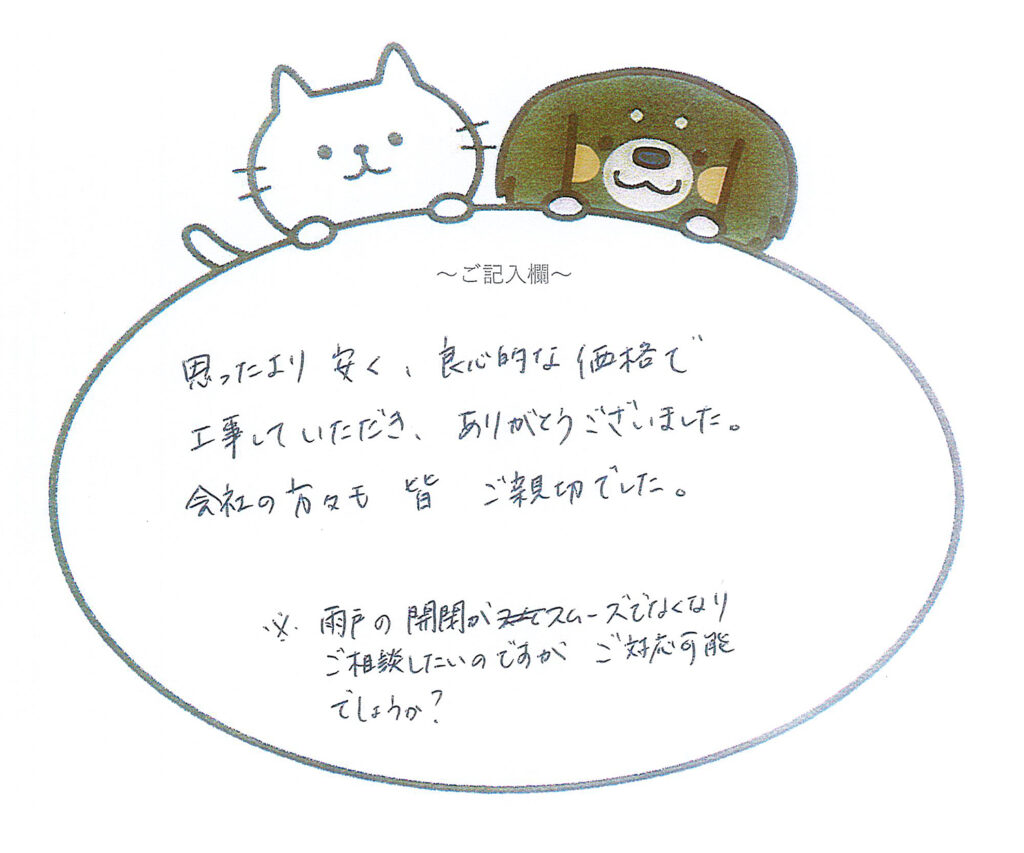 ～ご記入欄～
思ったより 安く、良心的な 価格で
工事していただき、ありがとうございました。
会社の方々も 皆 ご親切でした。
※ 雨戸の開閉がスムーズでなくなり
ご相談したいのですが ご対応可能
でしょうか？